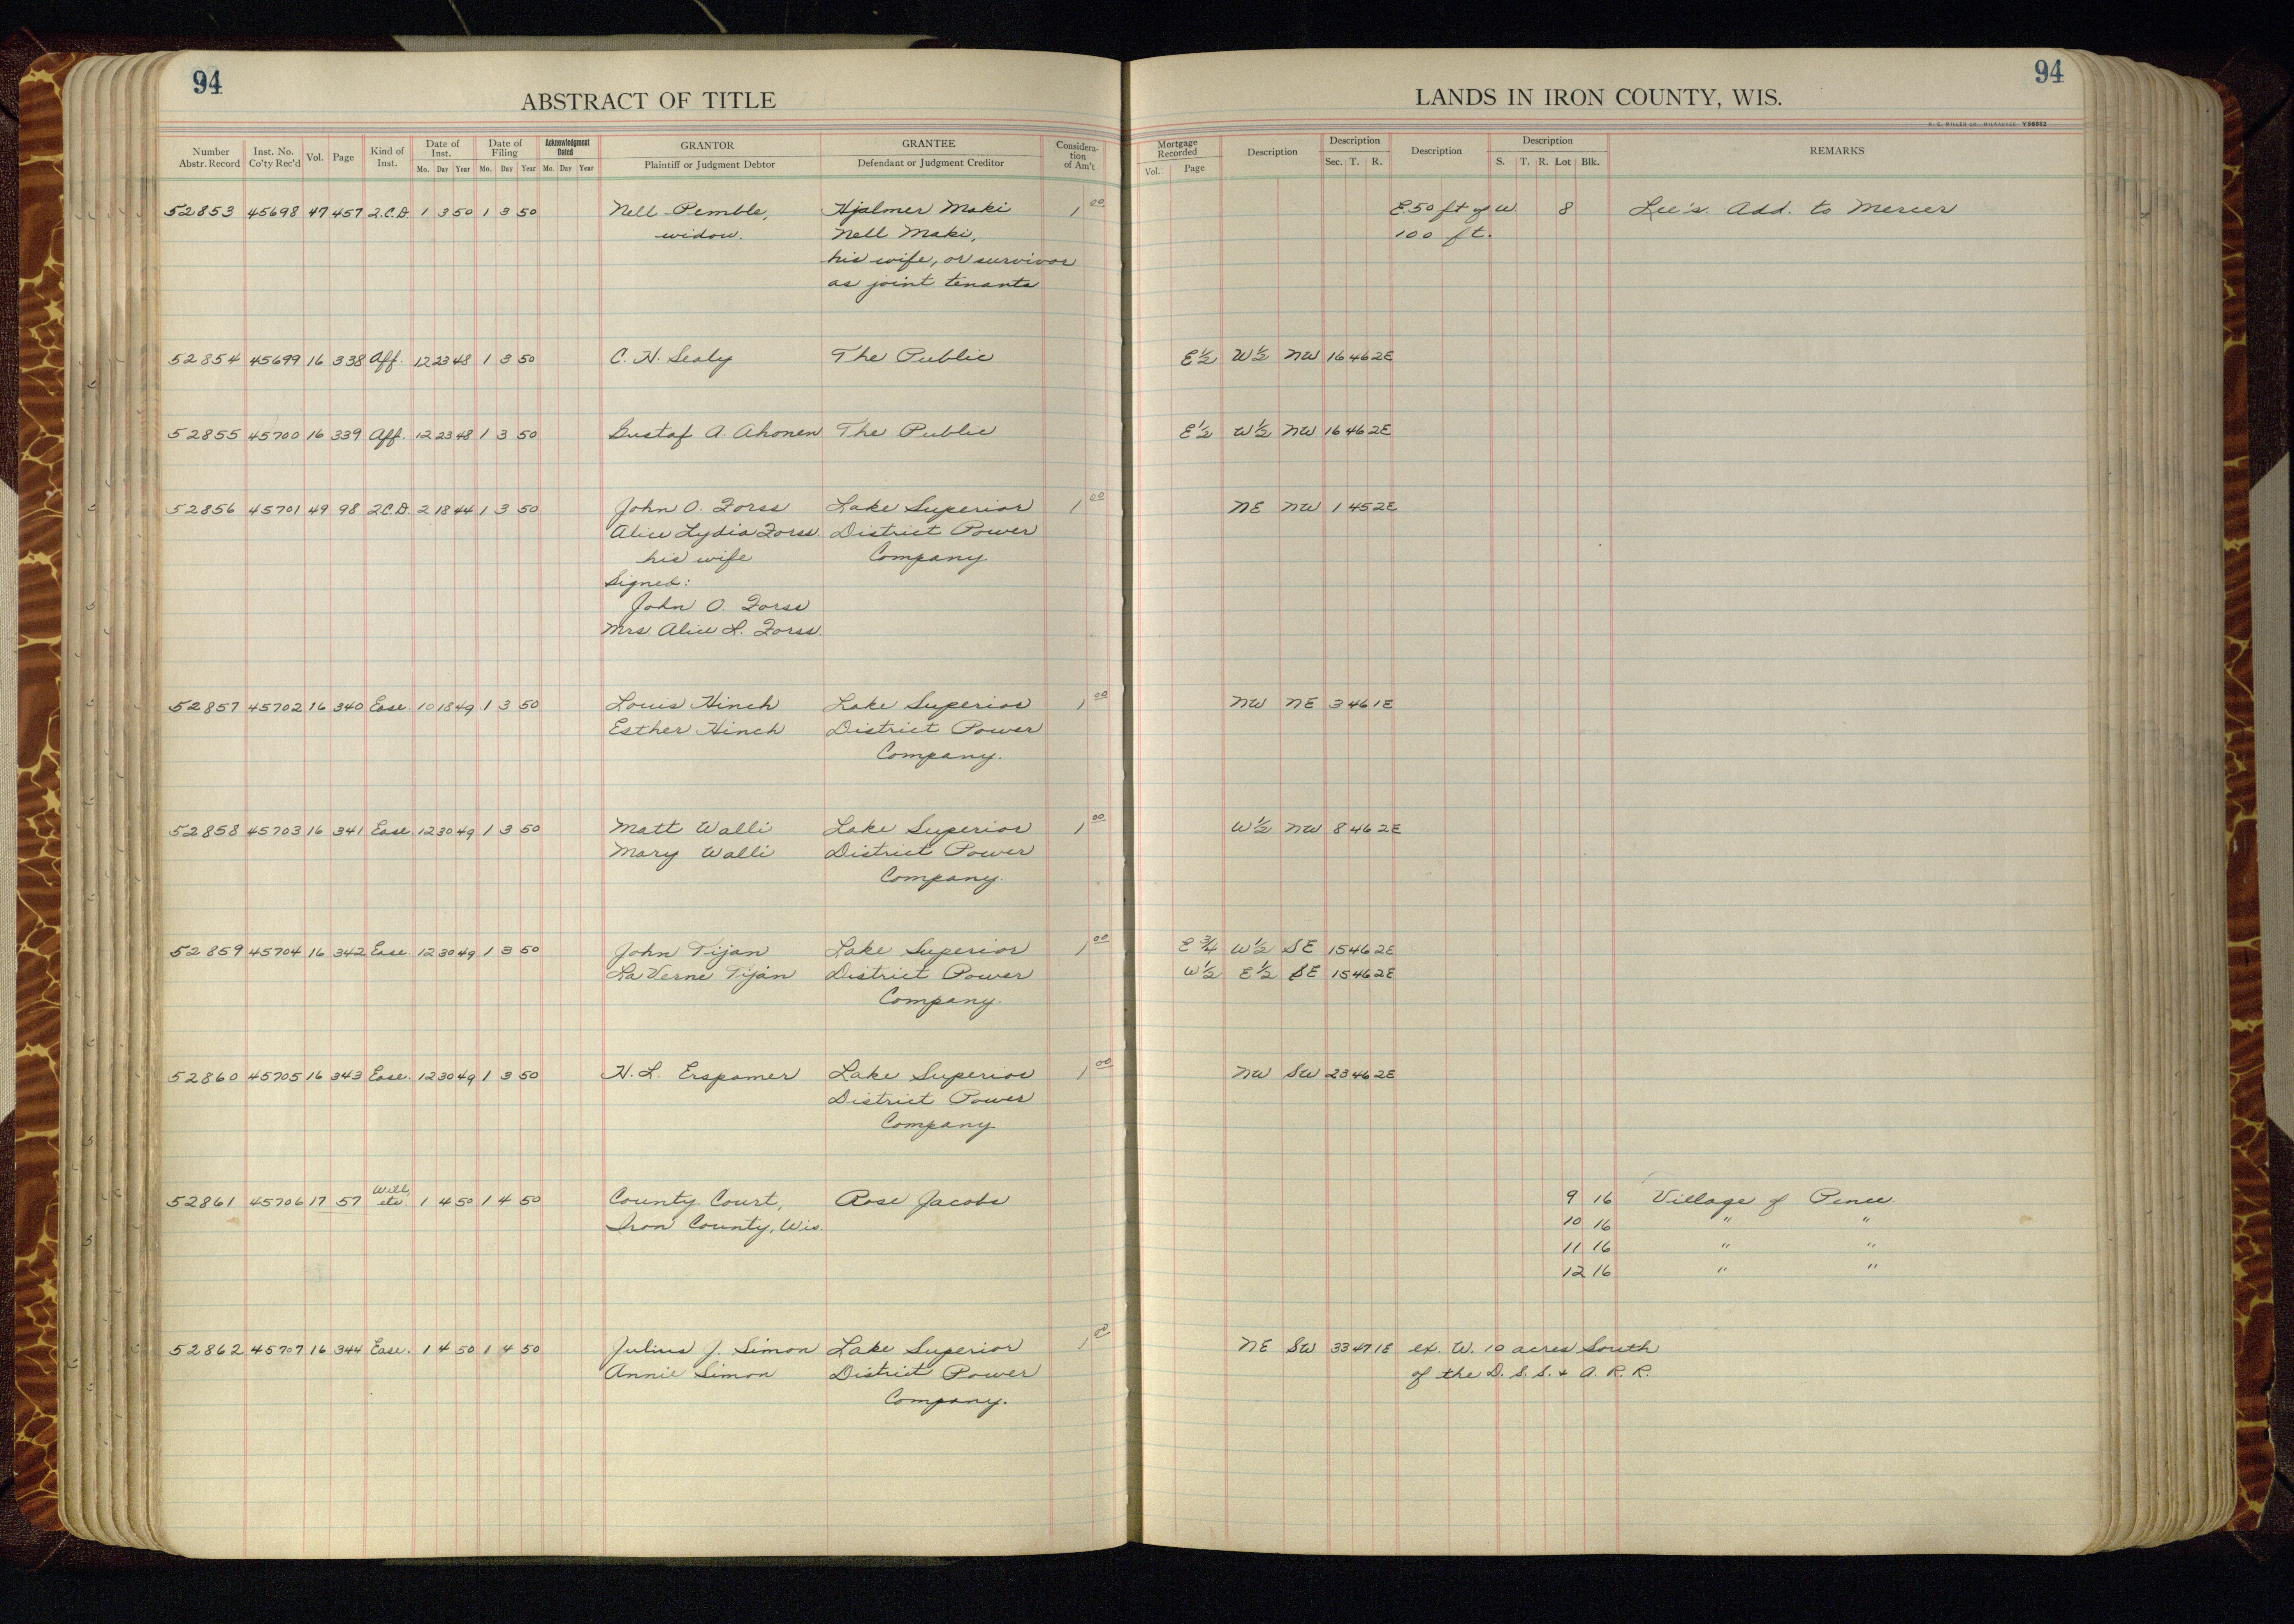 94
ABSTRACT OF TITLE
LANDS IN IRON COUNTY, WIS.
94
H. C. MILLER CO., MILWAUKEE Y56682
Number Abstr. Record Inst. No. Co'ty Rec'd Vol. Page Kind of Inst. Date of Inst. Mo. Day Year Date of Filing Mo. Day Year Acknowledgment Dated Mo. Day Year GRANTOR Plaintiff or Judgment Debtor GRANTEE Defendant or Judgment Creditor Considera-tion of Am't Mortgage Recorded Vol. Page Description Description Sec. T. R. Description Description S. T. R. Lot Blk. REMARKS
52853 45698 47 457 Q.C.D. 1 3 50 1 3 50 Nell Pemble, Hjalmer Maki 1 00 E. 50 ft of W. 8 Lee's. Add. to Mercer
widow. Nell Maki, 100 ft.
his wife, or survivor
as joint tenants
52854 45699 16 338 Aff. 12 23 48 1 3 50 C. H. Sealy The Public E½ W½ NW 16 46 2E
52855 45700 16 339 Aff. 12 23 48 1 3 50 Gustaf A. Ahonen The Public E½ W½ NW 16 46 2E
52856 45701 49 98 Q.C.D. 2 18 44 1 3 50 John O. Forss Lake Superior 1 00 NE NW 1 45 2E
Alice Lydia Forss District Power
his wife Company
Signed:
John O. Forss
Mrs. Alice L. Forss.
52857 45702 16 340 Ease. 10 18 49 1 3 50 Louis Hinch Lake Superior 1 00 NW NE 3 46 1E
Esther Hinch District Power
Company.
52858 45703 16 341 Ease 12 30 49 1 3 50 Matt Walli Lake Superior 1 00 W½ NW 8 46 2E
Mary Walli District Power
Company.
52859 45704 16 342 Ease. 12 30 49 1 3 50 John Tijan Lake Superior 1 00 E¾ W½ SE 15 46 2E
LaVerne Tijan District Power W½ E½ SE 15 46 2E
Company.
52860 45705 16 343 Ease. 12 30 49 1 3 50 H. L. Erspamer Lake Superior 1 00 NW SW 23 46 2E
District Power
Company
52861 45706 17 57 Will, etc. 1 4 50 1 4 50 County Court, Rose Jacobs 9 16 Village of Pence.
Iron County, Wis. 10 16 " "
11 16 " "
12 16 " "
52862 45707 16 344 Ease. 1 4 50 1 4 50 Julius J. Simon Lake Superior 1 00 NE SW 33 47 1E ex. W. 10 acres South
Annie Simon District Power of the D. S. S. & A. R. R.
Company.